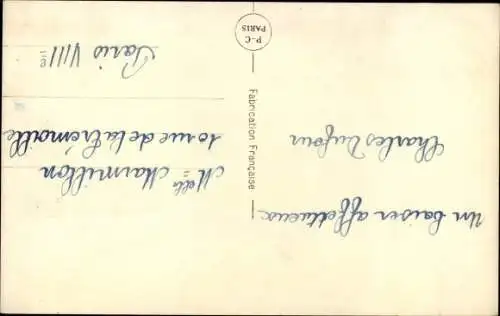 Un baiser affectueux
Charles Dufour
Fabrication Française
P-C
PARIS
Melle Marmillon
10 rue de la Trémoille
Paris VIIIe